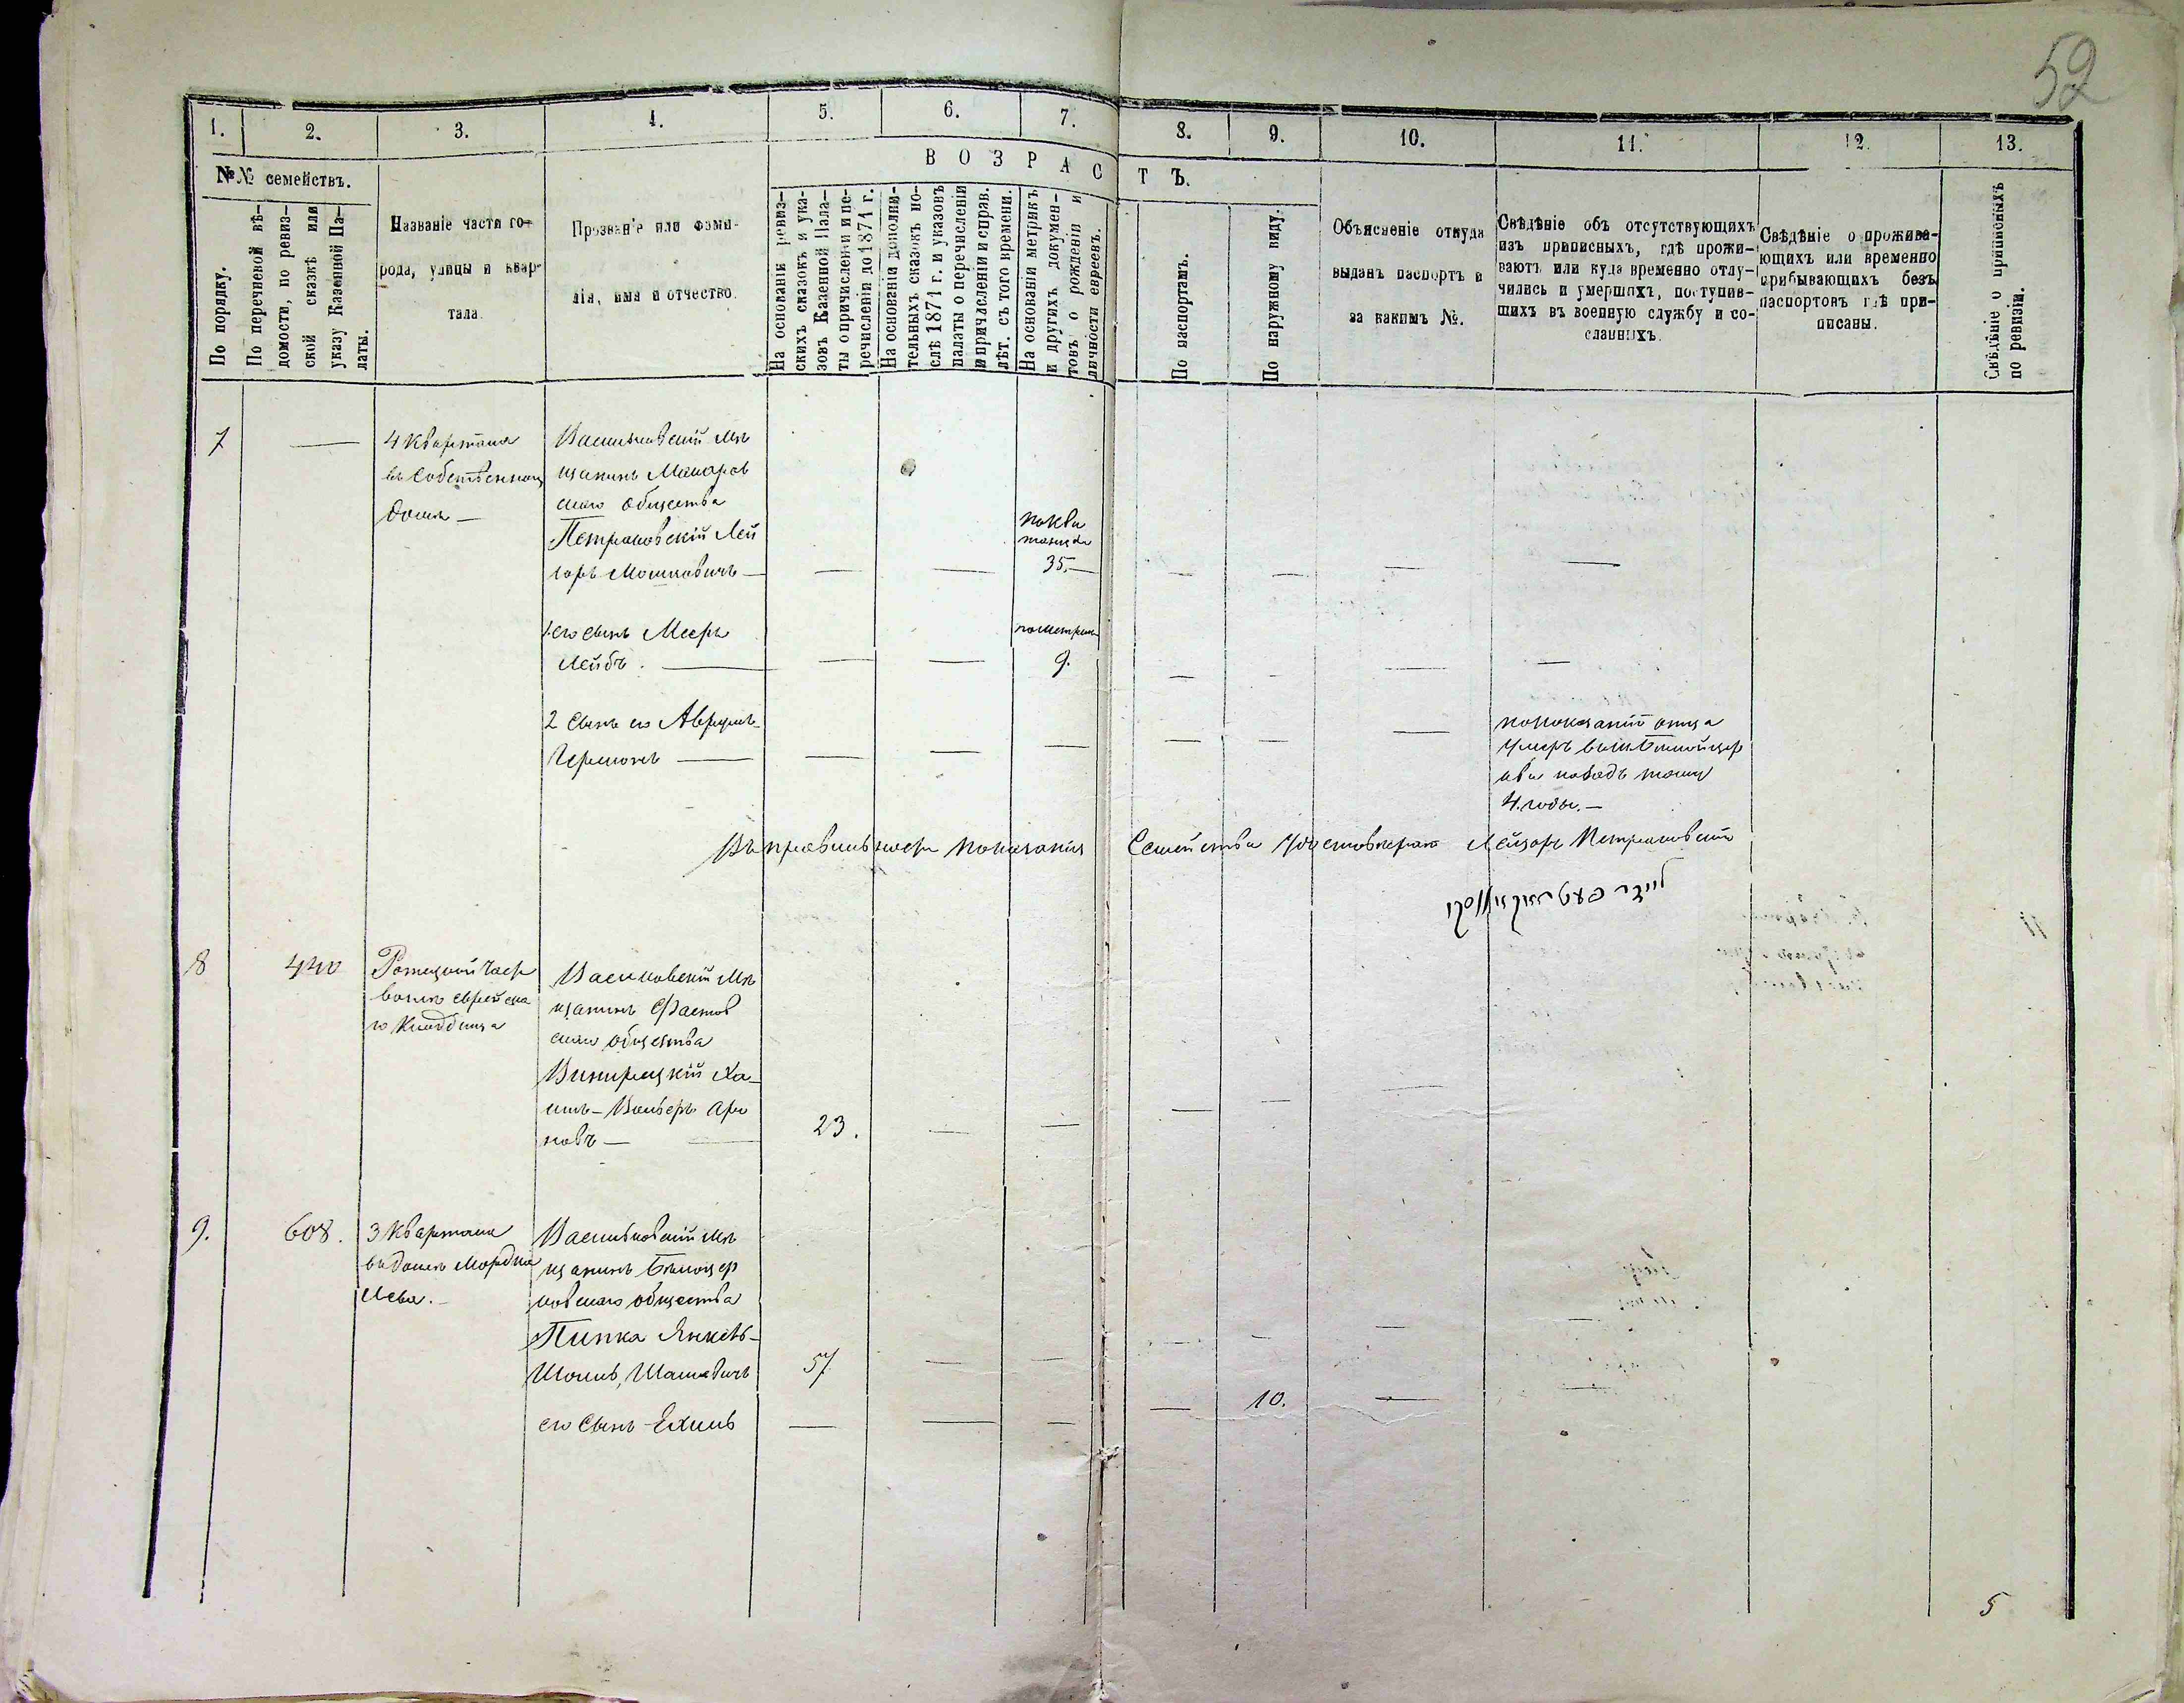 52
1. 2. 3. 4. 5. 6. 7. 8. 9. 10. 11. 12. 13.
№№ семействъ.
В О З Р А С Т Ъ.
По порядку.
По перечневой вѣ-
домости, по ревиз-
ской сказкѣ или
указу Казенной Па-
латы.
Названіе части го-
рода, улицы и квар-
тала
Прозваніе или фами-
лія, имя и отчество.
На основаніи ревиз-
скихъ сказокъ и ука-
зовъ Казенной Пала-
ты о причисленіи и пе-
речисленіи до 1871 г.
На основаніи дополни-
тельныхъ сказокъ по-
слѣ 1871 г. и указовъ
палаты о перечисленіи
и причисленіи и справ.
лѣт. съ того времени.
На основаніи метрикъ
и другихъ докумен-
товъ о рожденіи и
личности евреевъ.
По паспортамъ.
По наружному виду.
Объясненіе откуда
выданъ паспортъ и
за какимъ №.
Свѣдѣніе объ отсутствующихъ
изъ приписныхъ, гдѣ прожи-
ваютъ или куда временно отлу-
чились и умершихъ, поступив-
шихъ въ военную службу и со-
сланныхъ.
Свѣдѣніе о прожива-
ющихъ или временно
прибывающихъ безъ
паспортовъ гдѣ при-
писаны.
Свѣдѣніе о приписныхъ
по ревизіи.
7 —
4 Квартала
въ Собственном
домѣ —
Васильковскій Мѣ
щанинъ Макаров
скаго Общества
Петраковскій Лей
заръ Мошковичъ —
по кви
танціи
35. —
1. его сынъ Мееръ
Лейбъ. —
по метрик
9.
2 Сынъ его Аврумъ-
Гершонъ —
по показанію отца
умеръ въ м. Бѣлойцер
кви назадъ тому
4. годы. —
Въ правильности показанія Семейства удостовѣряю Лейзаръ Петраковскій
8 440
еврейска
го Кладбища
Васильковскій Мѣ
щанинъ Фастов
скаго общества
Ха-
имъ-Вольфъ Аро
новъ —
23.
9. 608.
3 Квартала
въ домѣ Мордка
Лева. —
Васильковскій Мѣ
щанинъ Бѣлоцер
ковскаго общества
Пипка Янкель-
Шоилъ, Шаевичъ
57.
его Сынъ Ехиль
10.
5